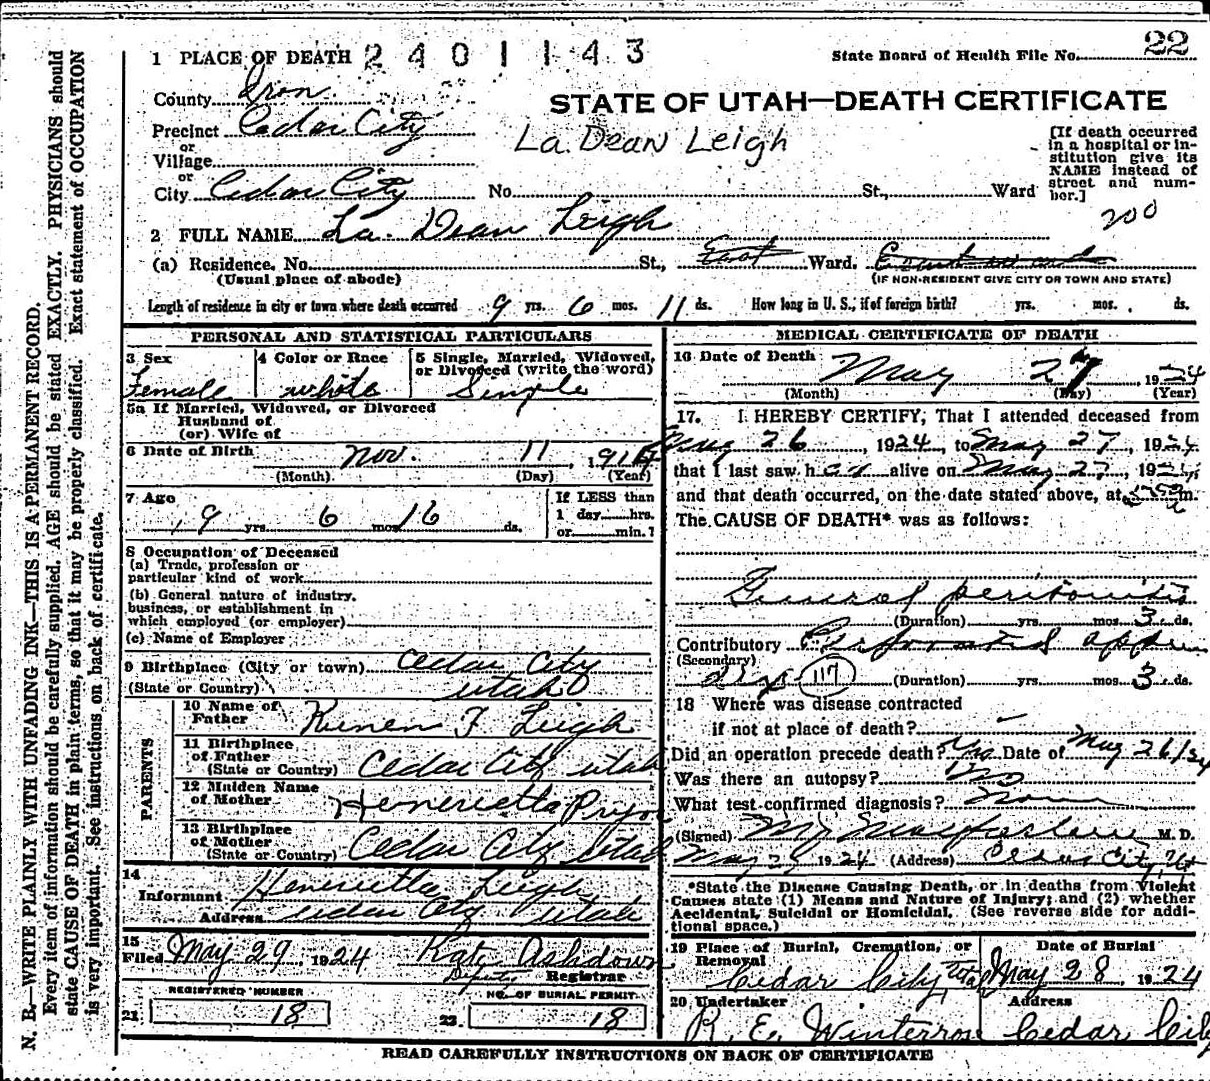 1 PLACE OF DEATH 2401143
State Board of Health File No. 22
County Iron
STATE OF UTAH—DEATH CERTIFICATE
Precinct Cedar City
La. Dean Leigh
or
Village
or
City Cedar City No. St., Ward
[If death occurred
in a hospital or in-
stitution give its
NAME instead of
street and num-
ber.]
200
2 FULL NAME La. Dean Leigh
(a) Residence. No. St., East Ward.
(Usual place of abode) (IF NON-RESIDENT GIVE CITY OR TOWN AND STATE)
Length of residence in city or town where death occurred 9 yrs. 6 mos. 11 ds. How long in U. S., if of foreign birth? yrs. mos. ds.
PERSONAL AND STATISTICAL PARTICULARS
3 Sex 4 Color or Race 5 Single, Married, Widowed,
or Divorced (write the word)
Female white Single
5a If Married, Widowed, or Divorced
Husband of
(or) Wife of
6 Date of Birth Nov. 11, 191
(Month) (Day) (Year)
7 Age If LESS than
9 yrs 6 mos 16 ds. 1 day hrs.
or min.?
8 Occupation of Deceased
(a) Trade, profession or
particular kind of work
(b) General nature of industry,
business, or establishment in
which employed (or employer)
(c) Name of Employer
9 Birthplace (City or town) Cedar City
(State or Country) Utah
PARENTS
10 Name of
Father F Leigh
11 Birthplace
of Father
(State or Country) Cedar City Utah
12 Maiden Name
of Mother Henerietta Pryor
13 Birthplace
of Mother
(State or Country) Cedar City Utah
14
Informant Henrietta Leigh
Address Cedar City Utah
15
Filed May 29, 1924 Kate Ashdown
Deputy Registrar
REGISTERED NUMBER NO. OF BURIAL PERMIT
21. 18 22. 18
MEDICAL CERTIFICATE OF DEATH
16 Date of Death May 27, 1924
(Month) (Day) (Year)
17. I HEREBY CERTIFY, That I attended deceased from
May 26, 1924, to May 27, 1924
that I last saw her alive on May 27, 1924
and that death occurred, on the date stated above, at m.
The CAUSE OF DEATH* was as follows:
General peritonitis
(Duration) yrs. mos. 3 ds.
Contributory Perforated appen
(Secondary)
dix 117 (Duration) yrs. mos. 3 ds.
18 Where was disease contracted
if not at place of death?
Did an operation precede death? Yes Date of May 26/24
Was there an autopsy? No
What test confirmed diagnosis? None
(Signed) M J Macfarlane M. D.
May 1924 (Address) Cedar City, Ut
*State the Disease Causing Death, or in deaths from Violent
Causes state (1) Means and Nature of Injury; and (2) whether
Accidental, Suicidal or Homicidal. (See reverse side for addi-
tional space.)
19 Place of Burial, Cremation, or Date of Burial
Removal
Cedar City, Utah May 28, 1924
20 Undertaker Address
R. E. Winterrose Cedar City
READ CAREFULLY INSTRUCTIONS ON BACK OF CERTIFICATE
N. B.—WRITE PLAINLY WITH UNFADING INK—THIS IS A PERMANENT RECORD.
Every item of information should be carefully supplied. AGE should be stated EXACTLY. PHYSICIANS should
state CAUSE OF DEATH in plain terms, so that it may be properly classified. Exact statement of OCCUPATION
is very important. See instructions on back of certificate.